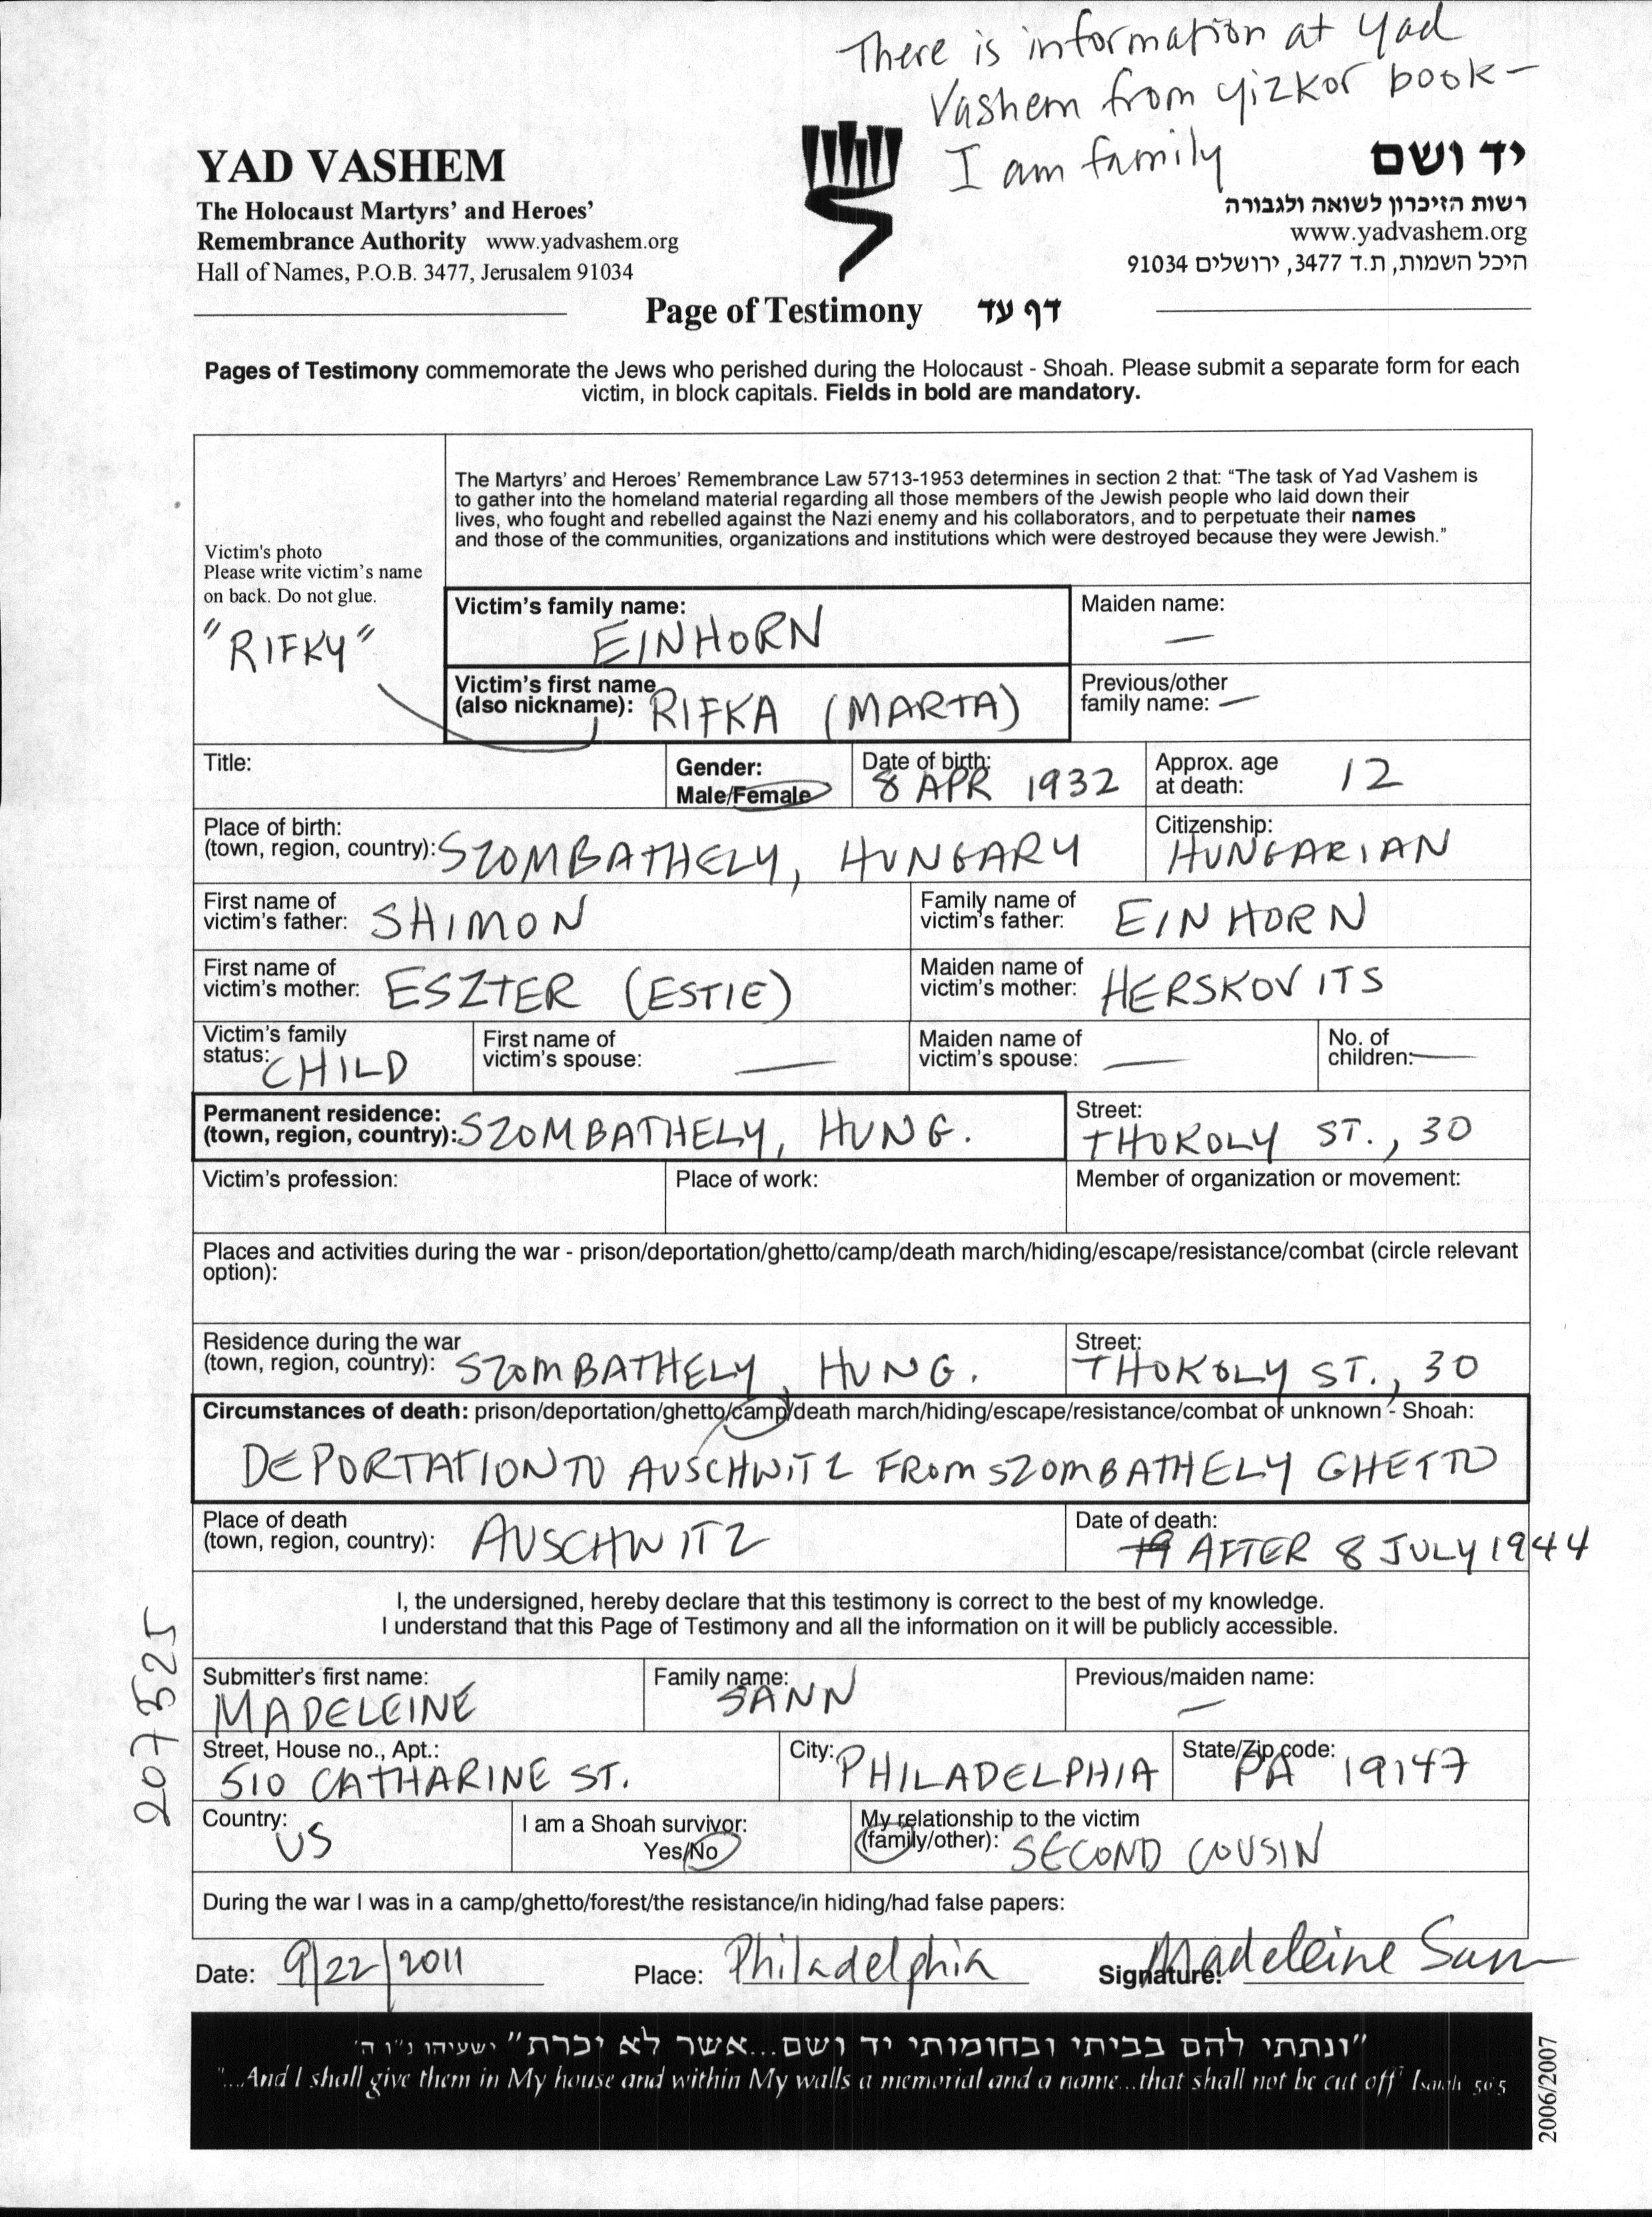 There is information at Yad
Vashem from yizkor book -
I am family
YAD VASHEM
The Holocaust Martyrs' and Heroes'
Remembrance Authority www.yadvashem.org
Hall of Names, P.O.B. 3477, Jerusalem 91034
יד ושם
רשות הזיכרון לשואה ולגבורה
www.yadvashem.org
היכל השמות, ת.ד 3477, ירושלים 91034
Page of Testimony דף עד
Pages of Testimony commemorate the Jews who perished during the Holocaust - Shoah. Please submit a separate form for each
victim, in block capitals. Fields in bold are mandatory.
The Martyrs' and Heroes' Remembrance Law 5713-1953 determines in section 2 that: "The task of Yad Vashem is
to gather into the homeland material regarding all those members of the Jewish people who laid down their
lives, who fought and rebelled against the Nazi enemy and his collaborators, and to perpetuate their names
and those of the communities, organizations and institutions which were destroyed because they were Jewish."
Victim's photo
Please write victim's name
on back. Do not glue.
"RIFKY"
Victim's family name: EINHORN
Maiden name: —
Victim's first name
(also nickname): RIFKA (MARTA)
Previous/other
family name: —
Title:
Gender:
Male/Female
Date of birth:
8 APR 1932
Approx. age
at death: 12
Place of birth:
(town, region, country): SZOMBATHELY, HUNGARY
Citizenship:
HUNGARIAN
First name of
victim's father: SHIMON
Family name of
victim's father: EINHORN
First name of
victim's mother: ESZTER (ESTIE)
Maiden name of
victim's mother: HERSKOVITS
Victim's family
status: CHILD
First name of
victim's spouse: —
Maiden name of
victim's spouse: —
No. of
children: —
Permanent residence:
(town, region, country): SZOMBATHELY, HUNG.
Street:
THOKOLY ST., 30
Victim's profession:
Place of work:
Member of organization or movement:
Places and activities during the war - prison/deportation/ghetto/camp/death march/hiding/escape/resistance/combat (circle relevant
option):
Residence during the war
(town, region, country): SZOMBATHELY, HUNG.
Street:
THOKOLY ST., 30
Circumstances of death: prison/deportation/ghetto/camp/death march/hiding/escape/resistance/combat or unknown - Shoah:
DEPORTATION TO AUSCHWITZ FROM SZOMBATHELY GHETTO
Place of death
(town, region, country): AUSCHWITZ
Date of death:
19 AFTER 8 JULY 1944
I, the undersigned, hereby declare that this testimony is correct to the best of my knowledge.
I understand that this Page of Testimony and all the information on it will be publicly accessible.
207525
Submitter's first name:
MADELEINE
Family name:
SANN
Previous/maiden name:
—
Street, House no., Apt.:
510 CATHARINE ST.
City: PHILADELPHIA
State/Zip code:
PA 19147
Country:
US
I am a Shoah survivor:
Yes/No
My relationship to the victim
(family/other): SECOND COUSIN
During the war I was in a camp/ghetto/forest/the resistance/in hiding/had false papers:
Date: 9/22/2011 Place: Philadelphia Signature: Madeleine Sann
"ונתתי להם בביתי ובחומותי יד ושם...אשר לא יכרת" ישעיהו נ"ו ה'
"...And I shall give them in My house and within My walls a memorial and a name...that shall not be cut off" Isaiah 56:5
2006/2007